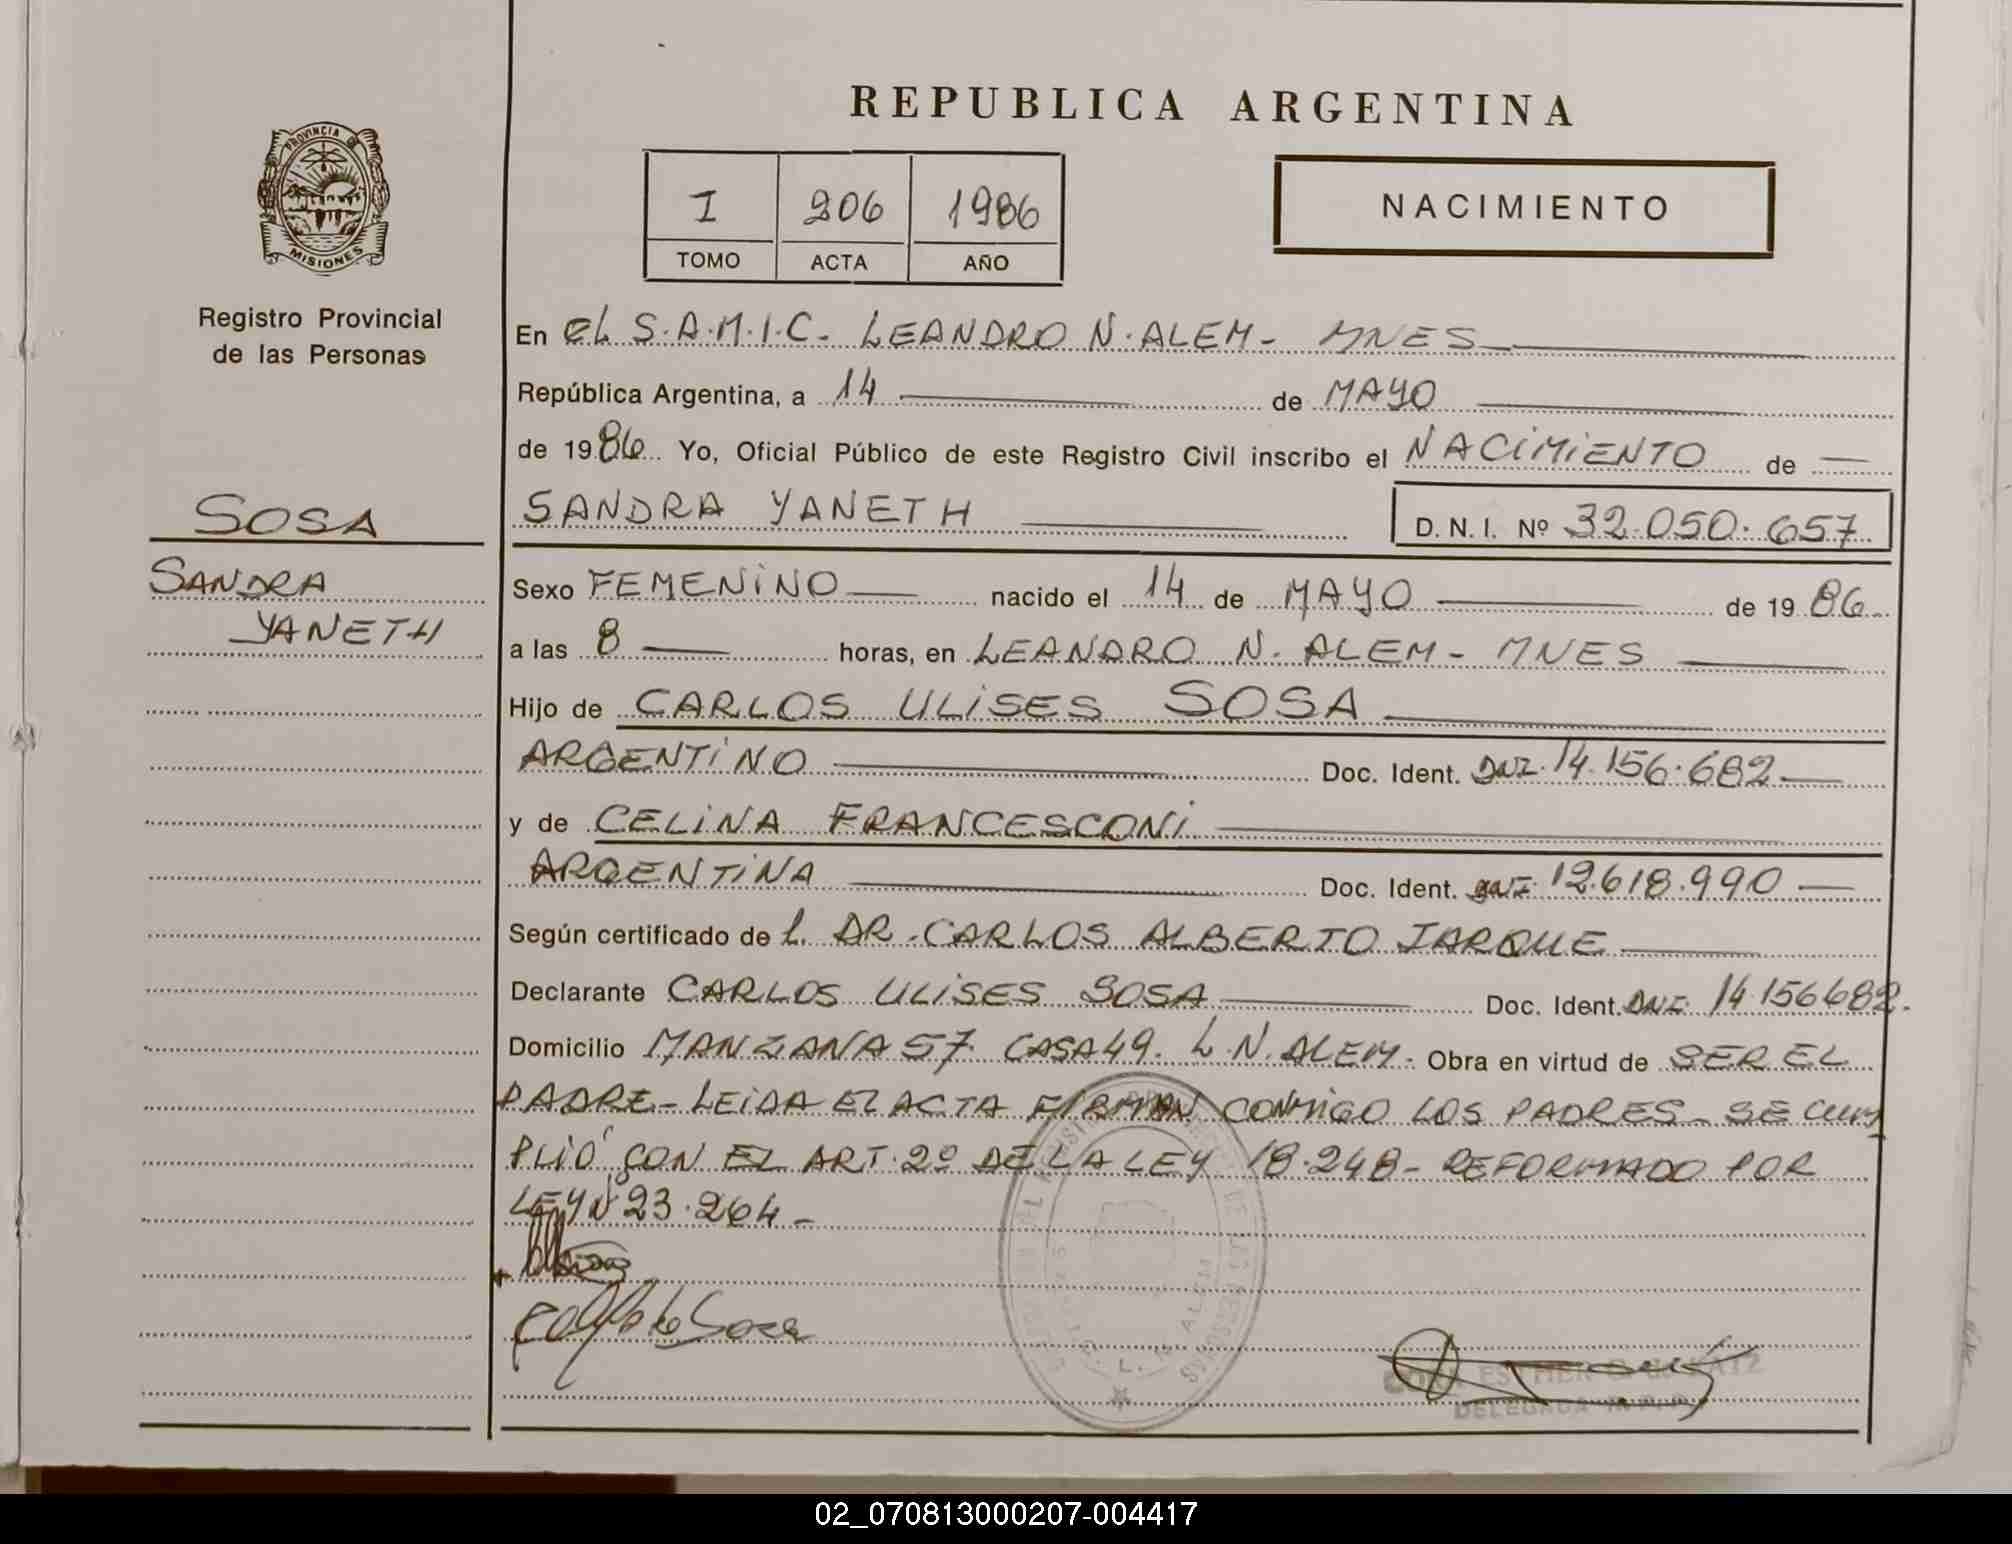 REPUBLICA ARGENTINA
PROVINCIA DE
MISIONES
Registro Provincial
de las Personas
I 206 1986
TOMO ACTA AÑO
NACIMIENTO
En EL S.A.M.I.C. LEANDRO N. ALEM - MNES
República Argentina, a 14 de MAYO
de 1986 Yo, Oficial Público de este Registro Civil inscribo el NACIMIENTO de
SOSA
SANDRA YANETH
SANDRA YANETH D.N.I. Nº 32.050.657
Sexo FEMENINO nacido el 14 de MAYO de 1986
a las 8 horas, en LEANDRO N. ALEM - MNES
Hijo de CARLOS ULISES SOSA
ARGENTINO Doc. Ident. DNI. 14.156.682
y de CELINA FRANCESCONI
ARGENTINA Doc. Ident. DNI. 12.618.990
Según certificado de L. DR. CARLOS ALBERTO JARQUE
Declarante CARLOS ULISES SOSA Doc. Ident. DNI 14.156682.
Domicilio MANZANA 57. CASA 49. L.N. ALEM. Obra en virtud de SER EL
PADRE - LEIDA EL ACTA FIRMAN CONMIGO LOS PADRES - SE CUM
PLIÓ CON EL ART. 2º DE LA LEY 18.248 - REFORMADO POR
LEY Nº 23.264 -
Sosa
L. N. ALEM
ESTHER G. de
DELEGADA R.P.P.
02_070813000207-004417